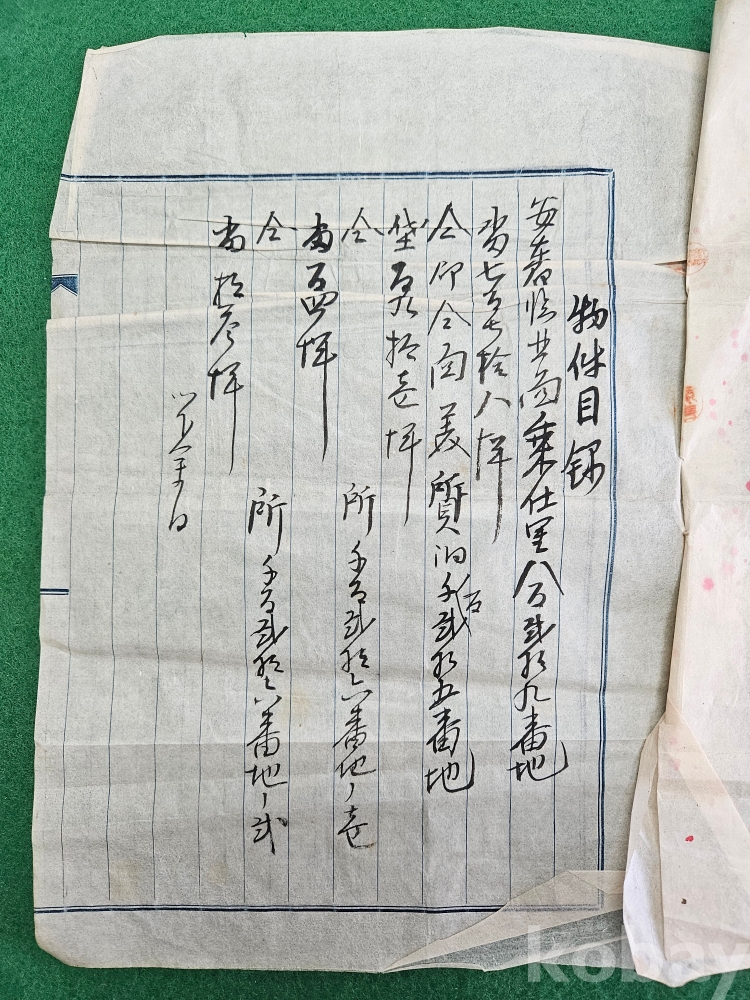 物件目録
安東郡臨北面棄仕里八百弐拾九番地
畓七百七拾八坪
仝郡仝面美質洞千百弐拾五番地
垈百九拾壱坪
仝 所 千百弐拾六番地ノ壱
畓百四坪
仝 所 千百弐拾六番地ノ弐
畓拾参坪
以下余白
kobay